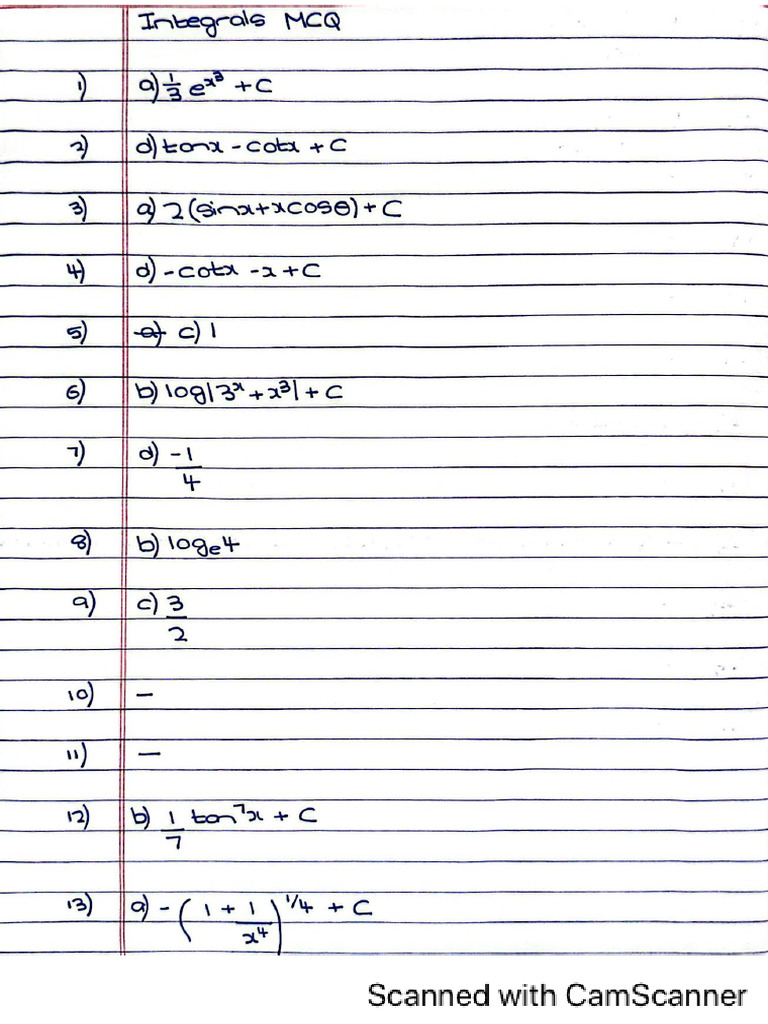 Integrals MCQ
1) a) 1/3 e^x³ + C
2) d) tanx - cotx + C
3) a) 2(sinx + xcosθ) + C
4) d) -cotx - x + C
5) a) c) 1
6) b) log|3^x + x³| + C
7) d) -1/4
8) b) logₑ4
9) c) 3/2
10) —
11) —
12) b) 1/7 tan⁷x + C
13) a) -(1 + 1/x⁴)^1/4 + C
Scanned with CamScanner